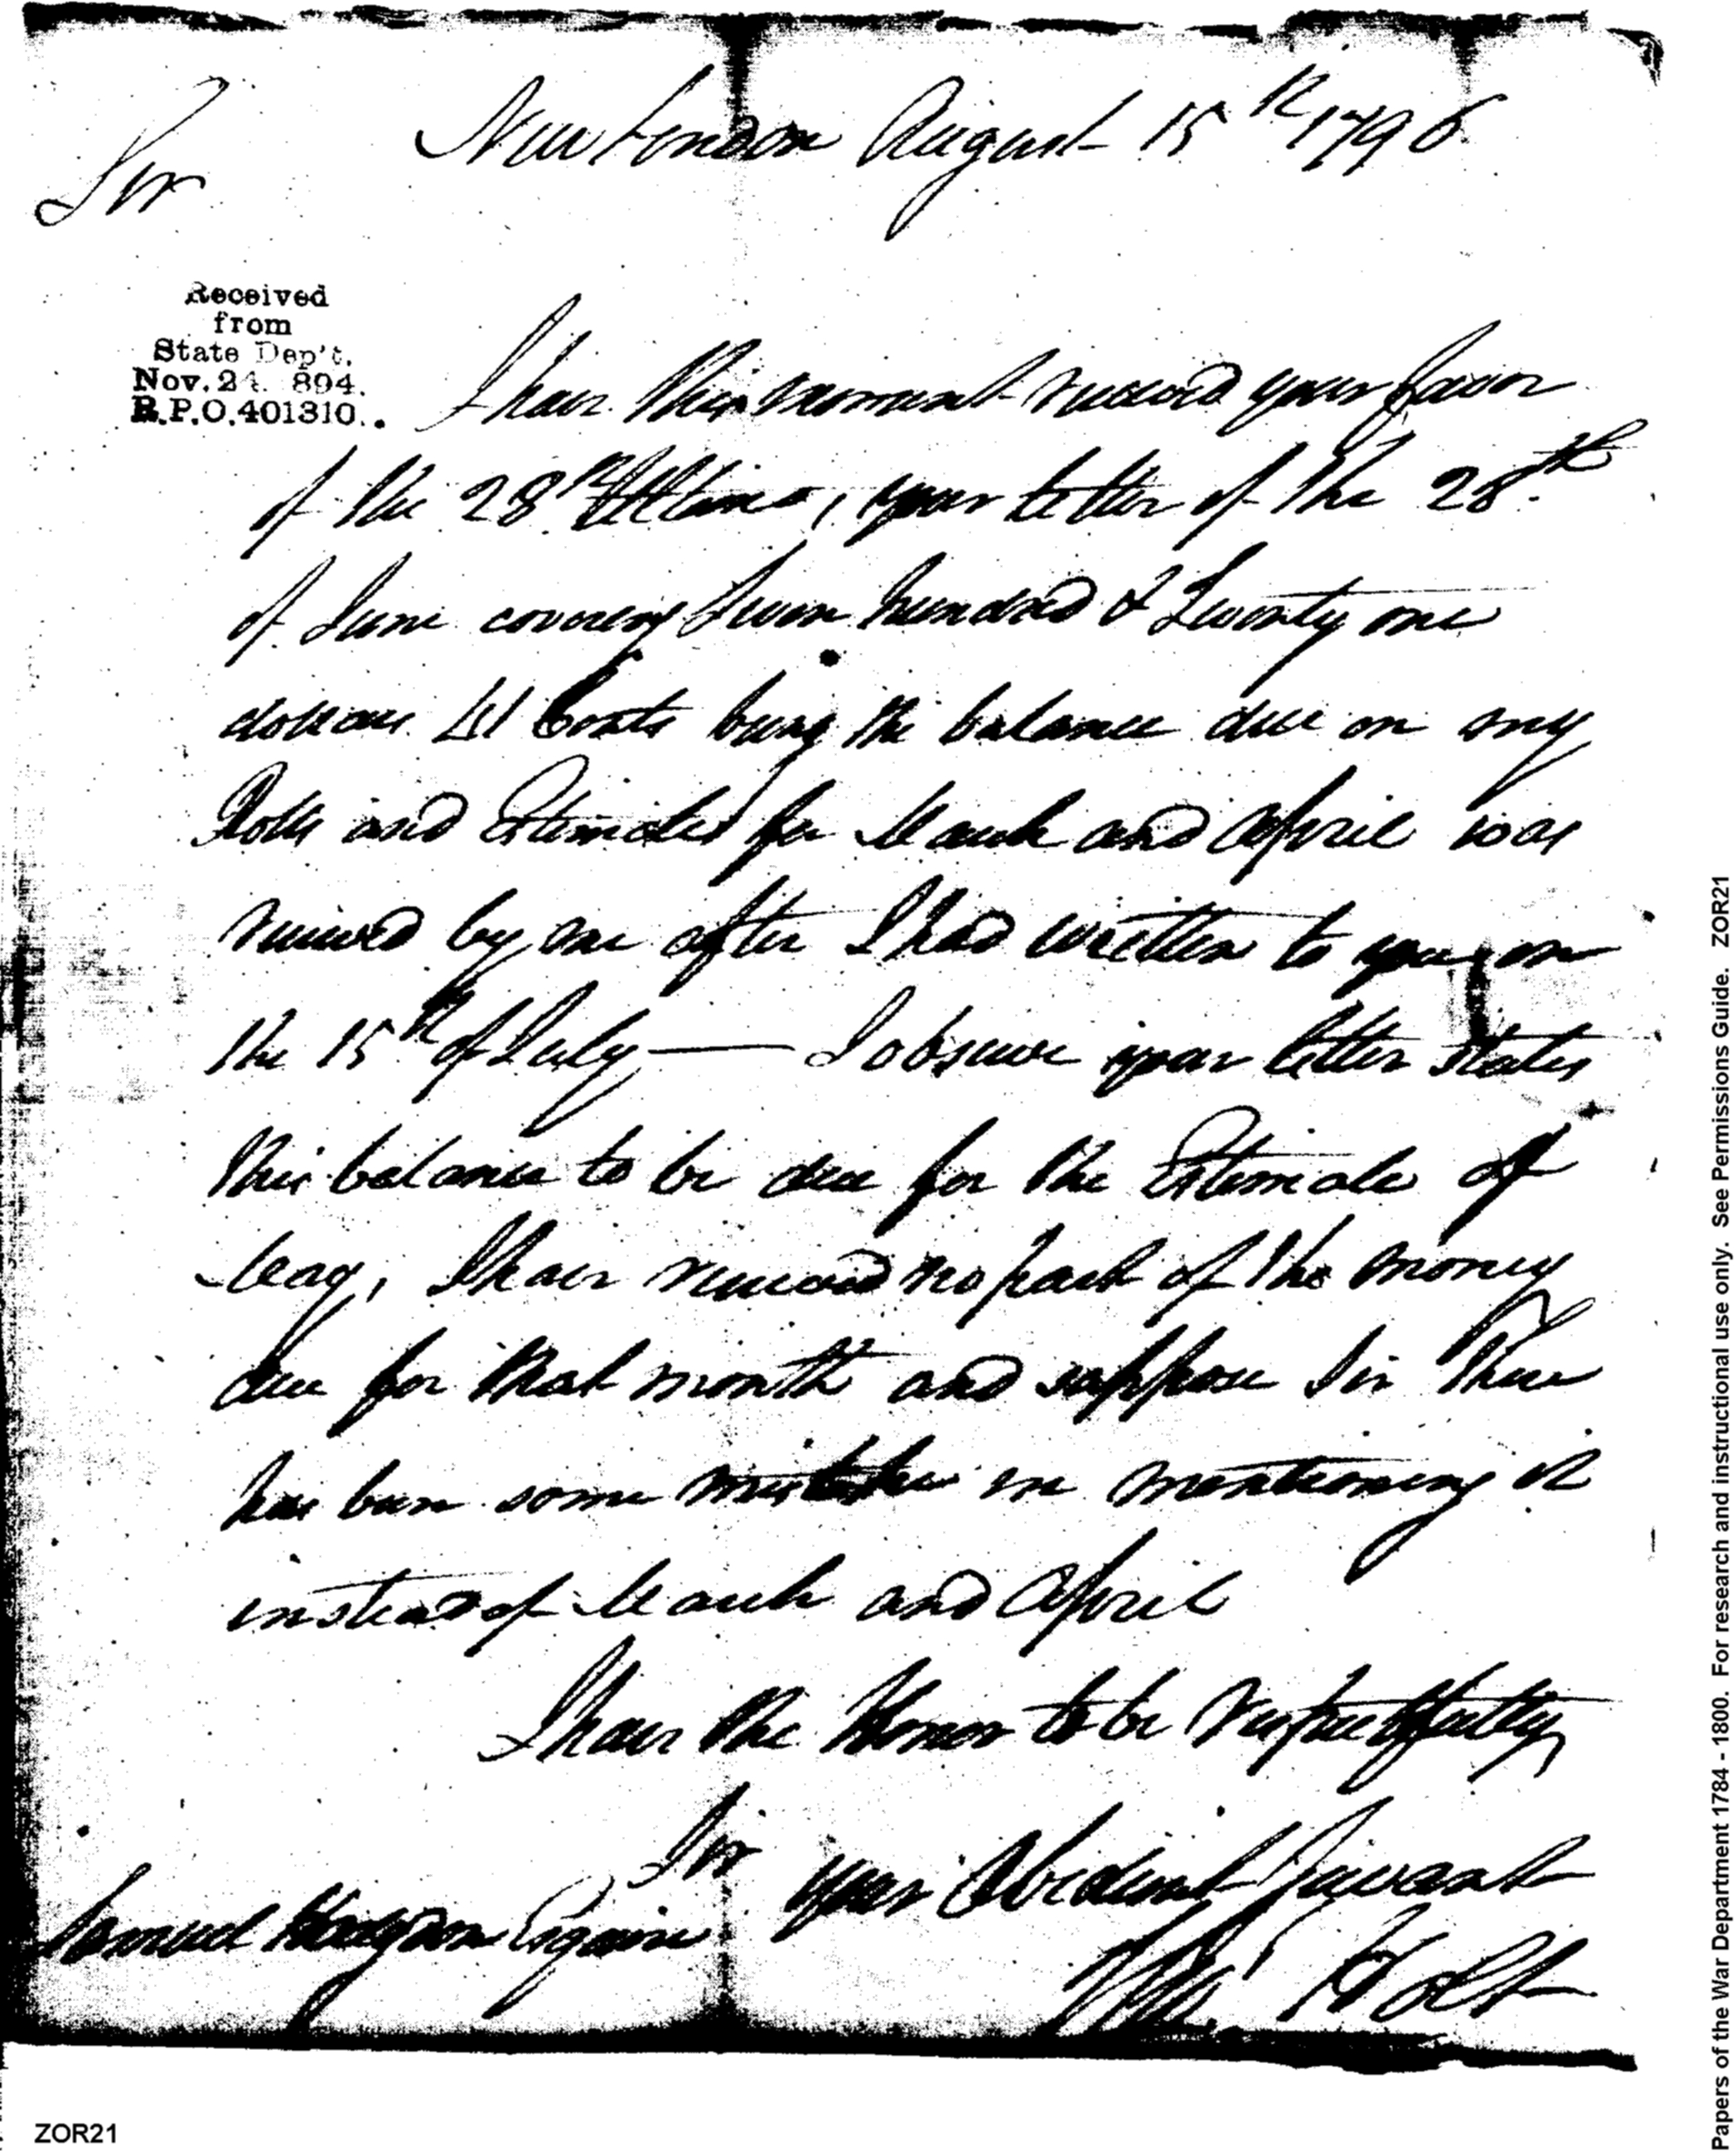 New London August 15th 1796
Sir
Received
from
State Dep't.
Nov. 24. 894.
R.P.O. 401310.
I have this moment received your favor
of the 28th Ultimo, your letter of the 28th
of June covering Seven hundred & Twenty one
dollars Cents being the balance due on my
Rolls and Estimates for March and April was
received by me after I had written to you on
the 15th of July — I observe your letter states
this balance to be due for the Estimate of
May, I have received no part of the money
due for that month and suppose Sir there
has been some mistake in mentioning it
instead of March and April
I have the Honor to be respectfully
Sir your Obedient Servant
Samuel Hodgdon Esquire
Wm. Holt
ZOR21
Papers of the War Department 1784 - 1800. For research and instructional use only. See Permissions Guide. ZOR21